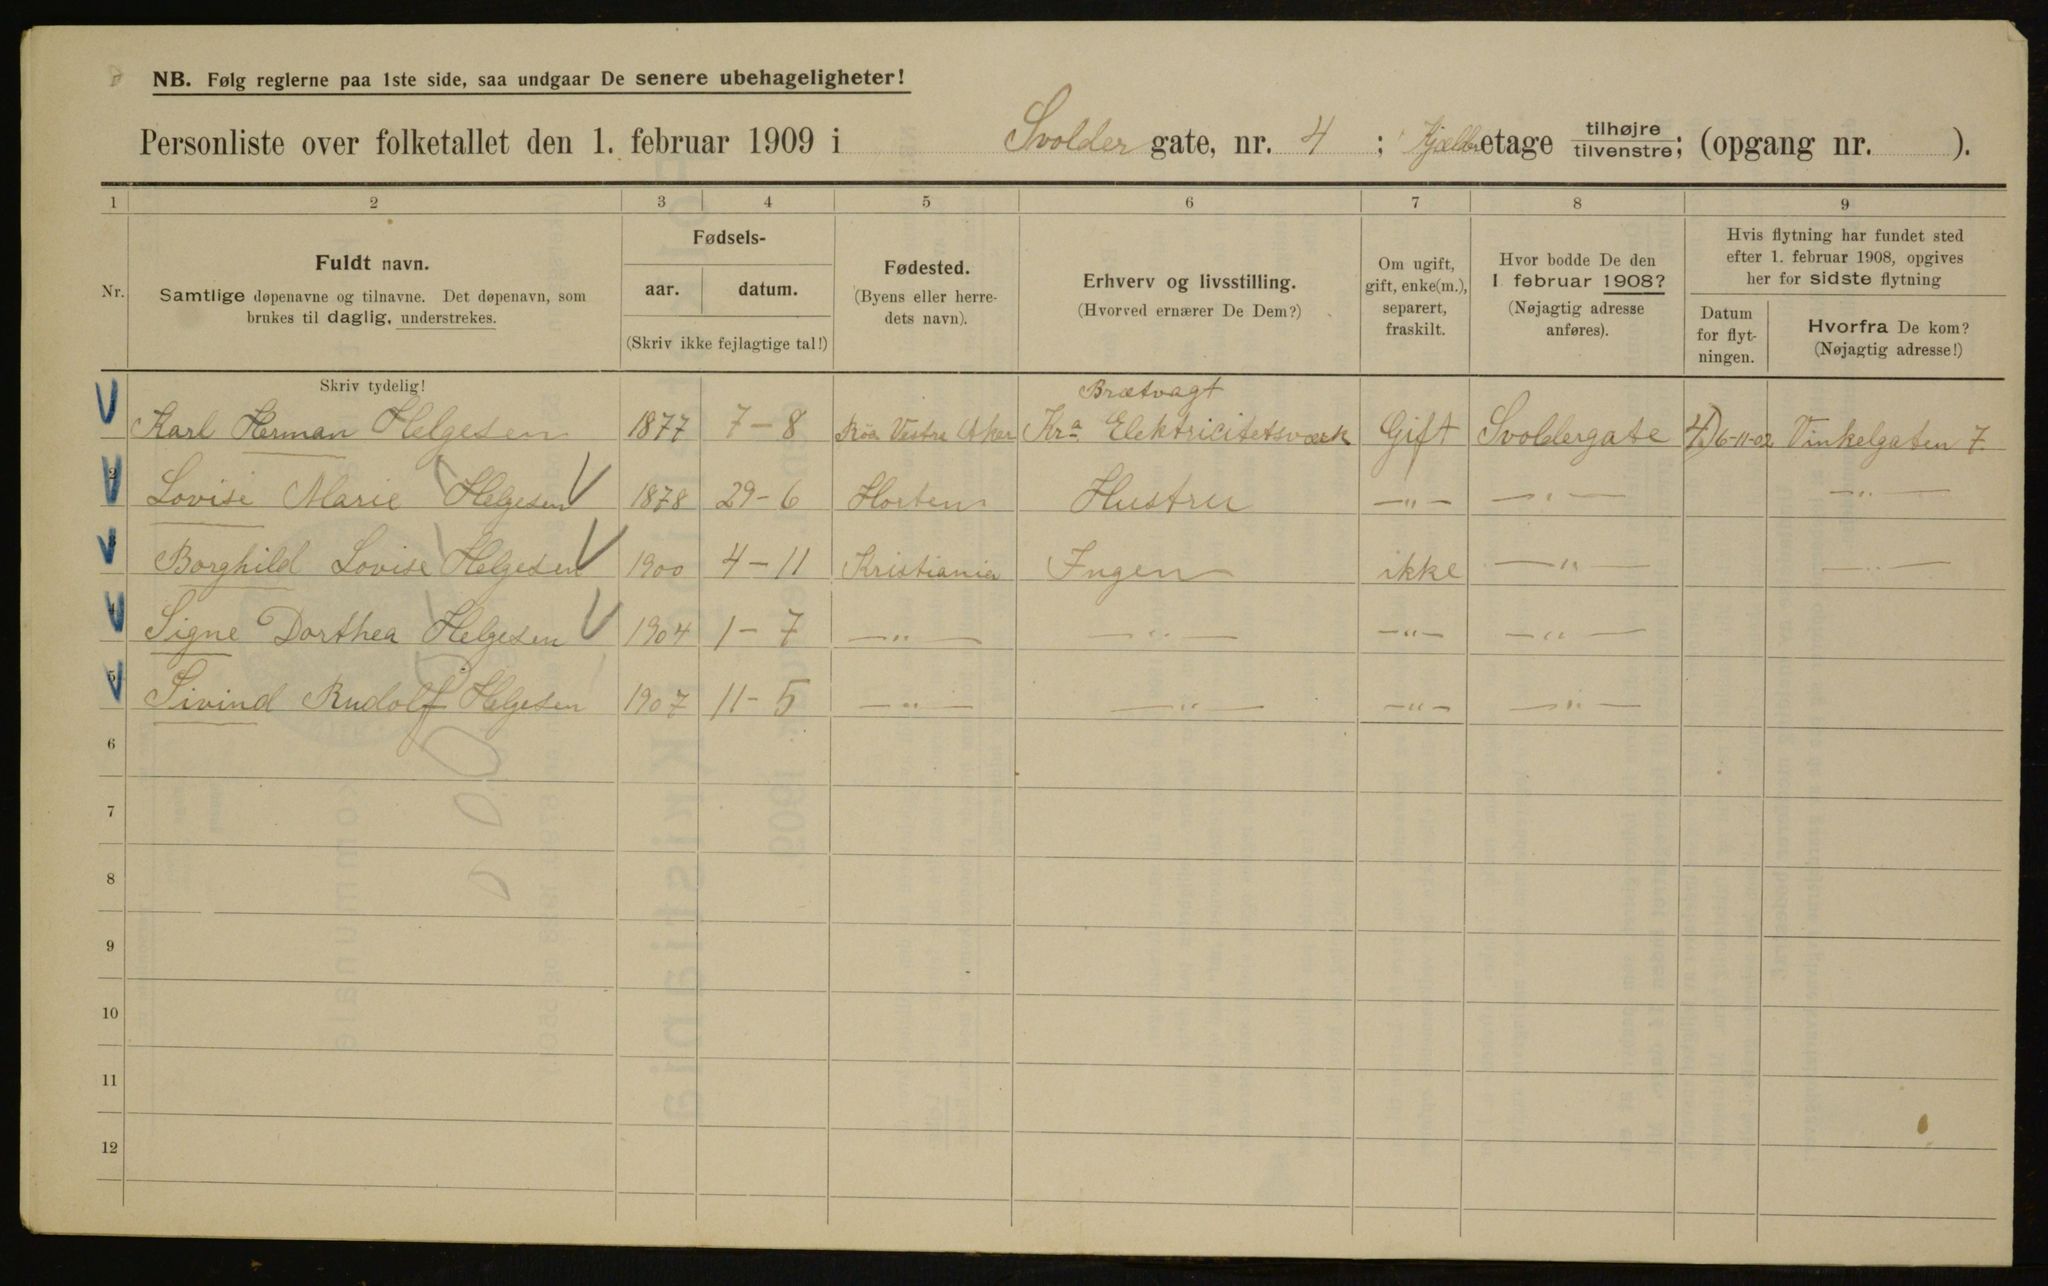 NB. Følg reglerne paa 1ste side, saa undgaar De senere ubehageligheter!
Personliste over folketallet den 1. februar 1909 i Svolder gate, nr. 4 ; Kjælder etage tilhøjre tilvenstre; (opgang nr. ).
1 2 3 4 5 6 7 8 9
Nr.
Fuldt navn.
Samtlige døpenavne og tilnavne. Det døpenavn, som
brukes til daglig, understrekes.
Fødsels-
aar. datum.
(Skriv ikke fejlagtige tal!)
Fødested.
(Byens eller herre-
dets navn).
Erhverv og livsstilling.
(Hvorved ernærer De Dem?)
Om ugift,
gift, enke(m.),
separert,
fraskilt.
Hvor bodde De den
1 februar 1908?
(Nøjagtig adresse
anføres).
Hvis flytning har fundet sted
efter 1. februar 1908, opgives
her for sidste flytning
Datum
for flyt-
ningen.
Hvorfra De kom?
(Nøjagtig adresse!)
Skriv tydelig!
Brætvagt
Karl Herman Helgesen 1877 7-8 Røa Vestre Aker Kra Elektricitetsværk Gift Svoldergate 4 16-11-02 Vinkelgaten 7.
2 Lovise Marie Helgesen 1878 29-6 Horten Hustru -"- -"- -"-
3 Borghild Lovise Helgesen 1900 4-11 Kristiania Ingen ikke -"- -"-
4 Signe Dorthea Helgesen 1904 1-7 -"- -"- -"- -"-
5 Eivind Rudolf Helgesen 1907 11-5 -"- -"- -"- -"-
6
7
8
9
10
11
12